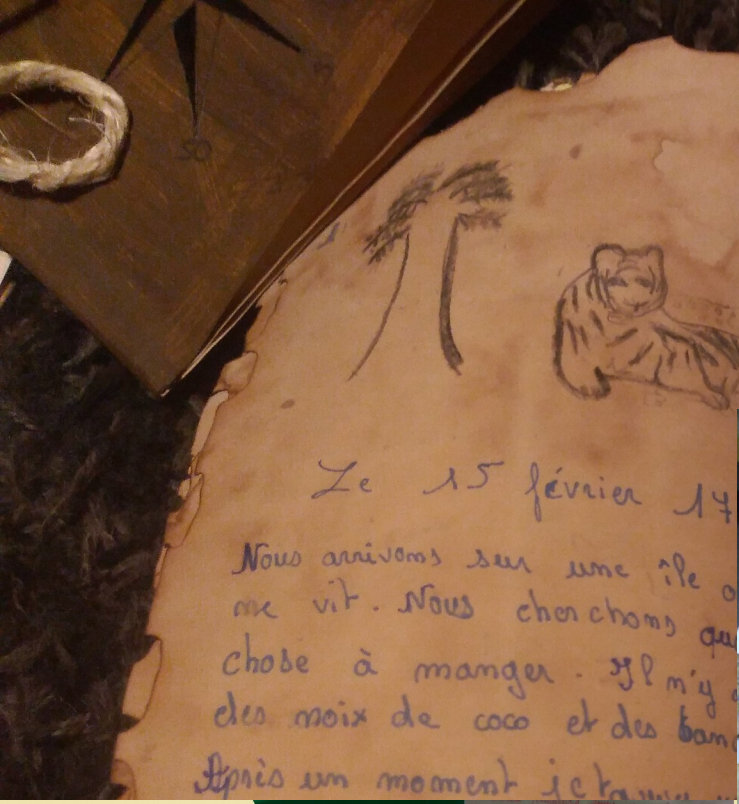 SO
Le 15 février 17
Nous arrivons sur une île o
ne vit. Nous cherchons qu
chose à manger. Il n'y a
des noix de coco et des ban
Après un moment je